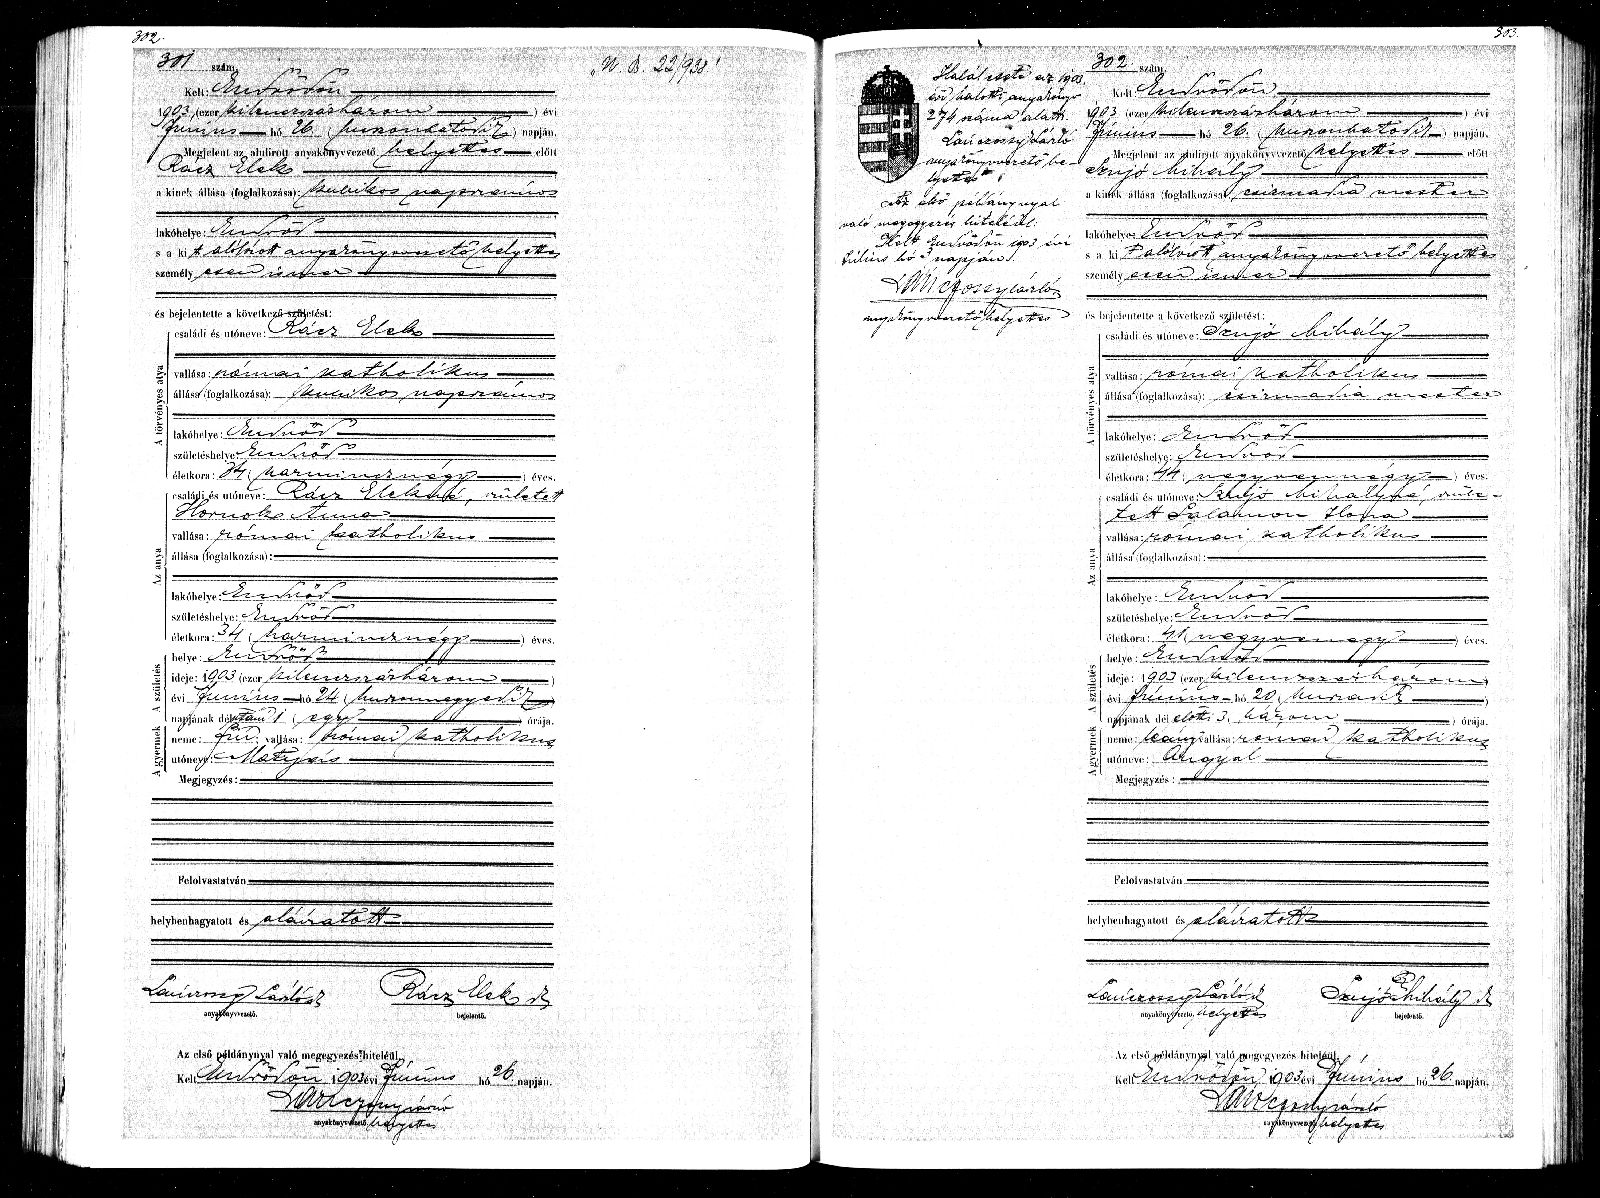 302.
301 szám.
"N. B. 22/938"
Kelt: Endrődön
1903 (ezer kilenczszázhárom) évi
Június hó 26. (huszonhatodik) napján.
Megjelent az alulirott anyakönyvvezető helyettes előtt
Rácz Elek
a kinek állása (foglalkozása): kubikos napszámos
lakóhelye: Endrőd
s a kit alólirott anyakönyvvezető helyettes
személyesen ismer
és bejelentette a következő születést:
A törvényes atya
családi és utóneve: Rácz Elek
vallása: római katholikus
állása (foglalkozása): kubikos napszámos
lakóhelye: Endrőd
születéshelye: Endrőd
életkora: 34 (harmincznégy) éves.
Az anya
családi és utóneve: Rácz Elekné, született
Hornok Anna
vallása: római katholikus
állása (foglalkozása):
lakóhelye: Endrőd
születéshelye: Endrőd
életkora: 34 (harmincznégy) éves.
A születés
helye: Endrőd
ideje: 1903 (ezer kilenczszázhárom)
évi Június hó 24 (huszonnegyedik)
napjának délután 1 (egy) órája.
A gyermek
neme: fiú vallása: római katholikus
utóneve: Mátyás
Megjegyzés:
Felolvastatván
helybenhagyatott és aláíratott
Lanczossy László
anyakönyvvezető.
Rácz Elek
bejelentő.
Az első példánynyal való megegyezés hiteléül
Kelt Endrődön 1903 évi Június hó 26 napján.
Lanczossy László
anyakönyvvezető helyettes
303.
Halál eseté az 1903
évi halotti anyakönyv
274 száma alatt.
Lanczossy László
anyakönyvvezető he-
lyettes
Az első példánynyal
való megegyezés hiteléül.
Kelt Endrődön 1903 évi
Július hó 3 napján.
Lanczossy László
anyakönyvvezető helyettes
302 szám.
Kelt Endrődön
1903 (ezer kilenczszázhárom) évi
Június hó 26. (huszonhatodik) napján.
Megjelent az alulirott anyakönyvvezető helyettes előtt
Szujó Mihály
a kinek állása (foglalkozása): csizmadia mester
lakóhelye: Endrőd
s a kit alólirott anyakönyvvezető helyettes
személyesen ismer
és bejelentette a következő születést:
A törvényes atya
családi és utóneve: Szujó Mihály
vallása: római katholikus
állása (foglalkozása): csizmadia mester
lakóhelye: Endrőd
születéshelye: Endrőd
életkora: 44 (negyvennégy) éves.
Az anya
családi és utóneve: Szujó Mihályné, szüle-
tett Salamon Ilona
vallása: római katholikus
állása (foglalkozása):
lakóhelye: Endrőd
születéshelye: Endrőd
életkora: 41 (negyvenegy) éves.
A születés
helye: Endrőd
ideje: 1903 (ezer kilenczszázhárom)
évi Június hó 20. (huszadik)
napjának dél előtti 3. (három) órája.
A gyermek
neme: leány vallása: római katholikus
utóneve: Angyal
Megjegyzés:
Felolvastatván
helybenhagyatott és aláíratott
Lanczossy László
anyakönyvvezető. helyettes
Szujó Mihály
bejelentő.
Az első példánynyal való megegyezés hiteléül.
Kelt Endrődön 1903 évi Június hó 26 napján.
Lanczossy László
anyakönyvvezető helyettes